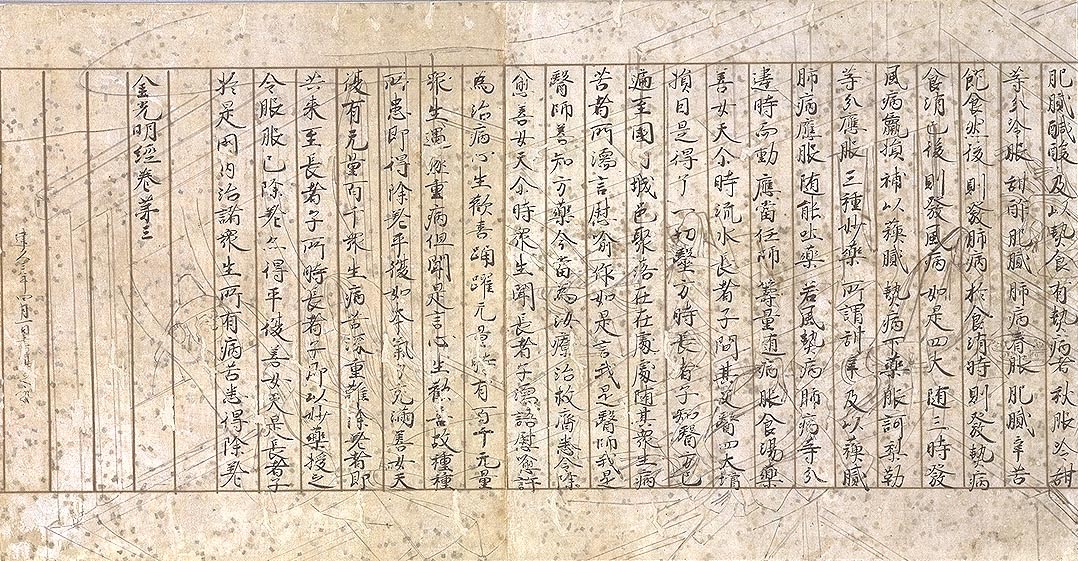 肥膩醎酸及以熱食有熱病者秋服冷甜
等分冷服甜酢肥膩肺病春服肥膩辛苦
飽食然後則發肺病於食消時則發熱病
食消已後則發風病如是四大随三時發
風病羸損補以蘓膩熱病下藥服訶梨勒
等分應服三種妙藥所謂甜辛及以蘓膩
肺病應服随能吐藥若風熱病肺病等分
違時而動應當任師籌量随病服食湯藥
善女天尒時流水長者子問其父醫四大增
損因是得了一切醫方時長者子知醫方已
遍至國內城邑聚落在在處處随其衆生病
苦者所濡言慰喻作如是言我是醫師我是
醫師善知方藥今當為汝療治救濟悉令除
愈善女天尒時衆生聞長者子濡語慰愈許
為治病心生歡喜踊躍无量時有百千无量
衆生遇極重病但聞是言心生歡喜故種種
所患即得除差平復如本氣力充滿善女天
復有无量百千衆生病苦深重難除差者即
共来至長者子所時長者子即以妙藥授之
令服服已除差亦得平復善女天是長者子
於是國內治諸衆生所有病苦悉得除差
金光明經卷苐三
建久三年四月一日